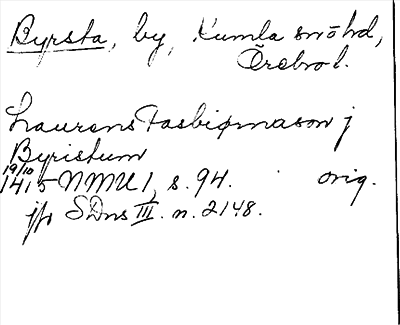 Byrsta, by, Kumla snöhd,
Örebro l.
Laurens Fasbiornason j
Byristum
19/10
1415 NMU 1, s. 94. orig.
jfr SDns III. n. 2148.